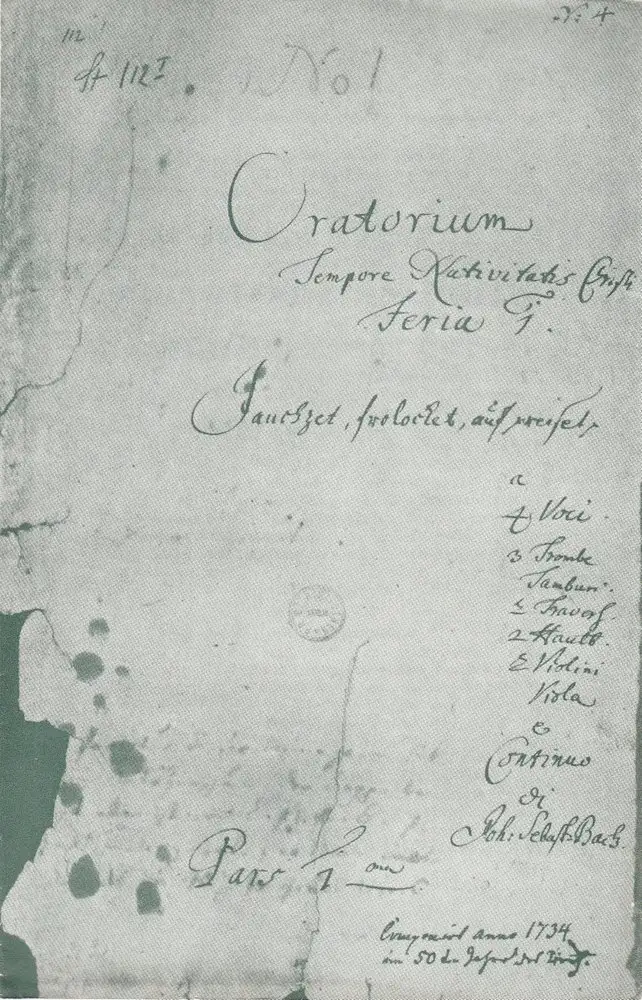 No: 4
No 1
Oratorium
Tempore Nativitatis Christi
Feria 1.
Jauchzet, frolocket, auf preiset,
a
4 Voci.
3 Trombe
Tamburi.
2 Travers.
2 Hautb.
2 Violini
Viola
e
Continuo
di
Joh: Sebast: Bach.
Pars 1 ma
Componirt anno 1734
im 50 Jahre des